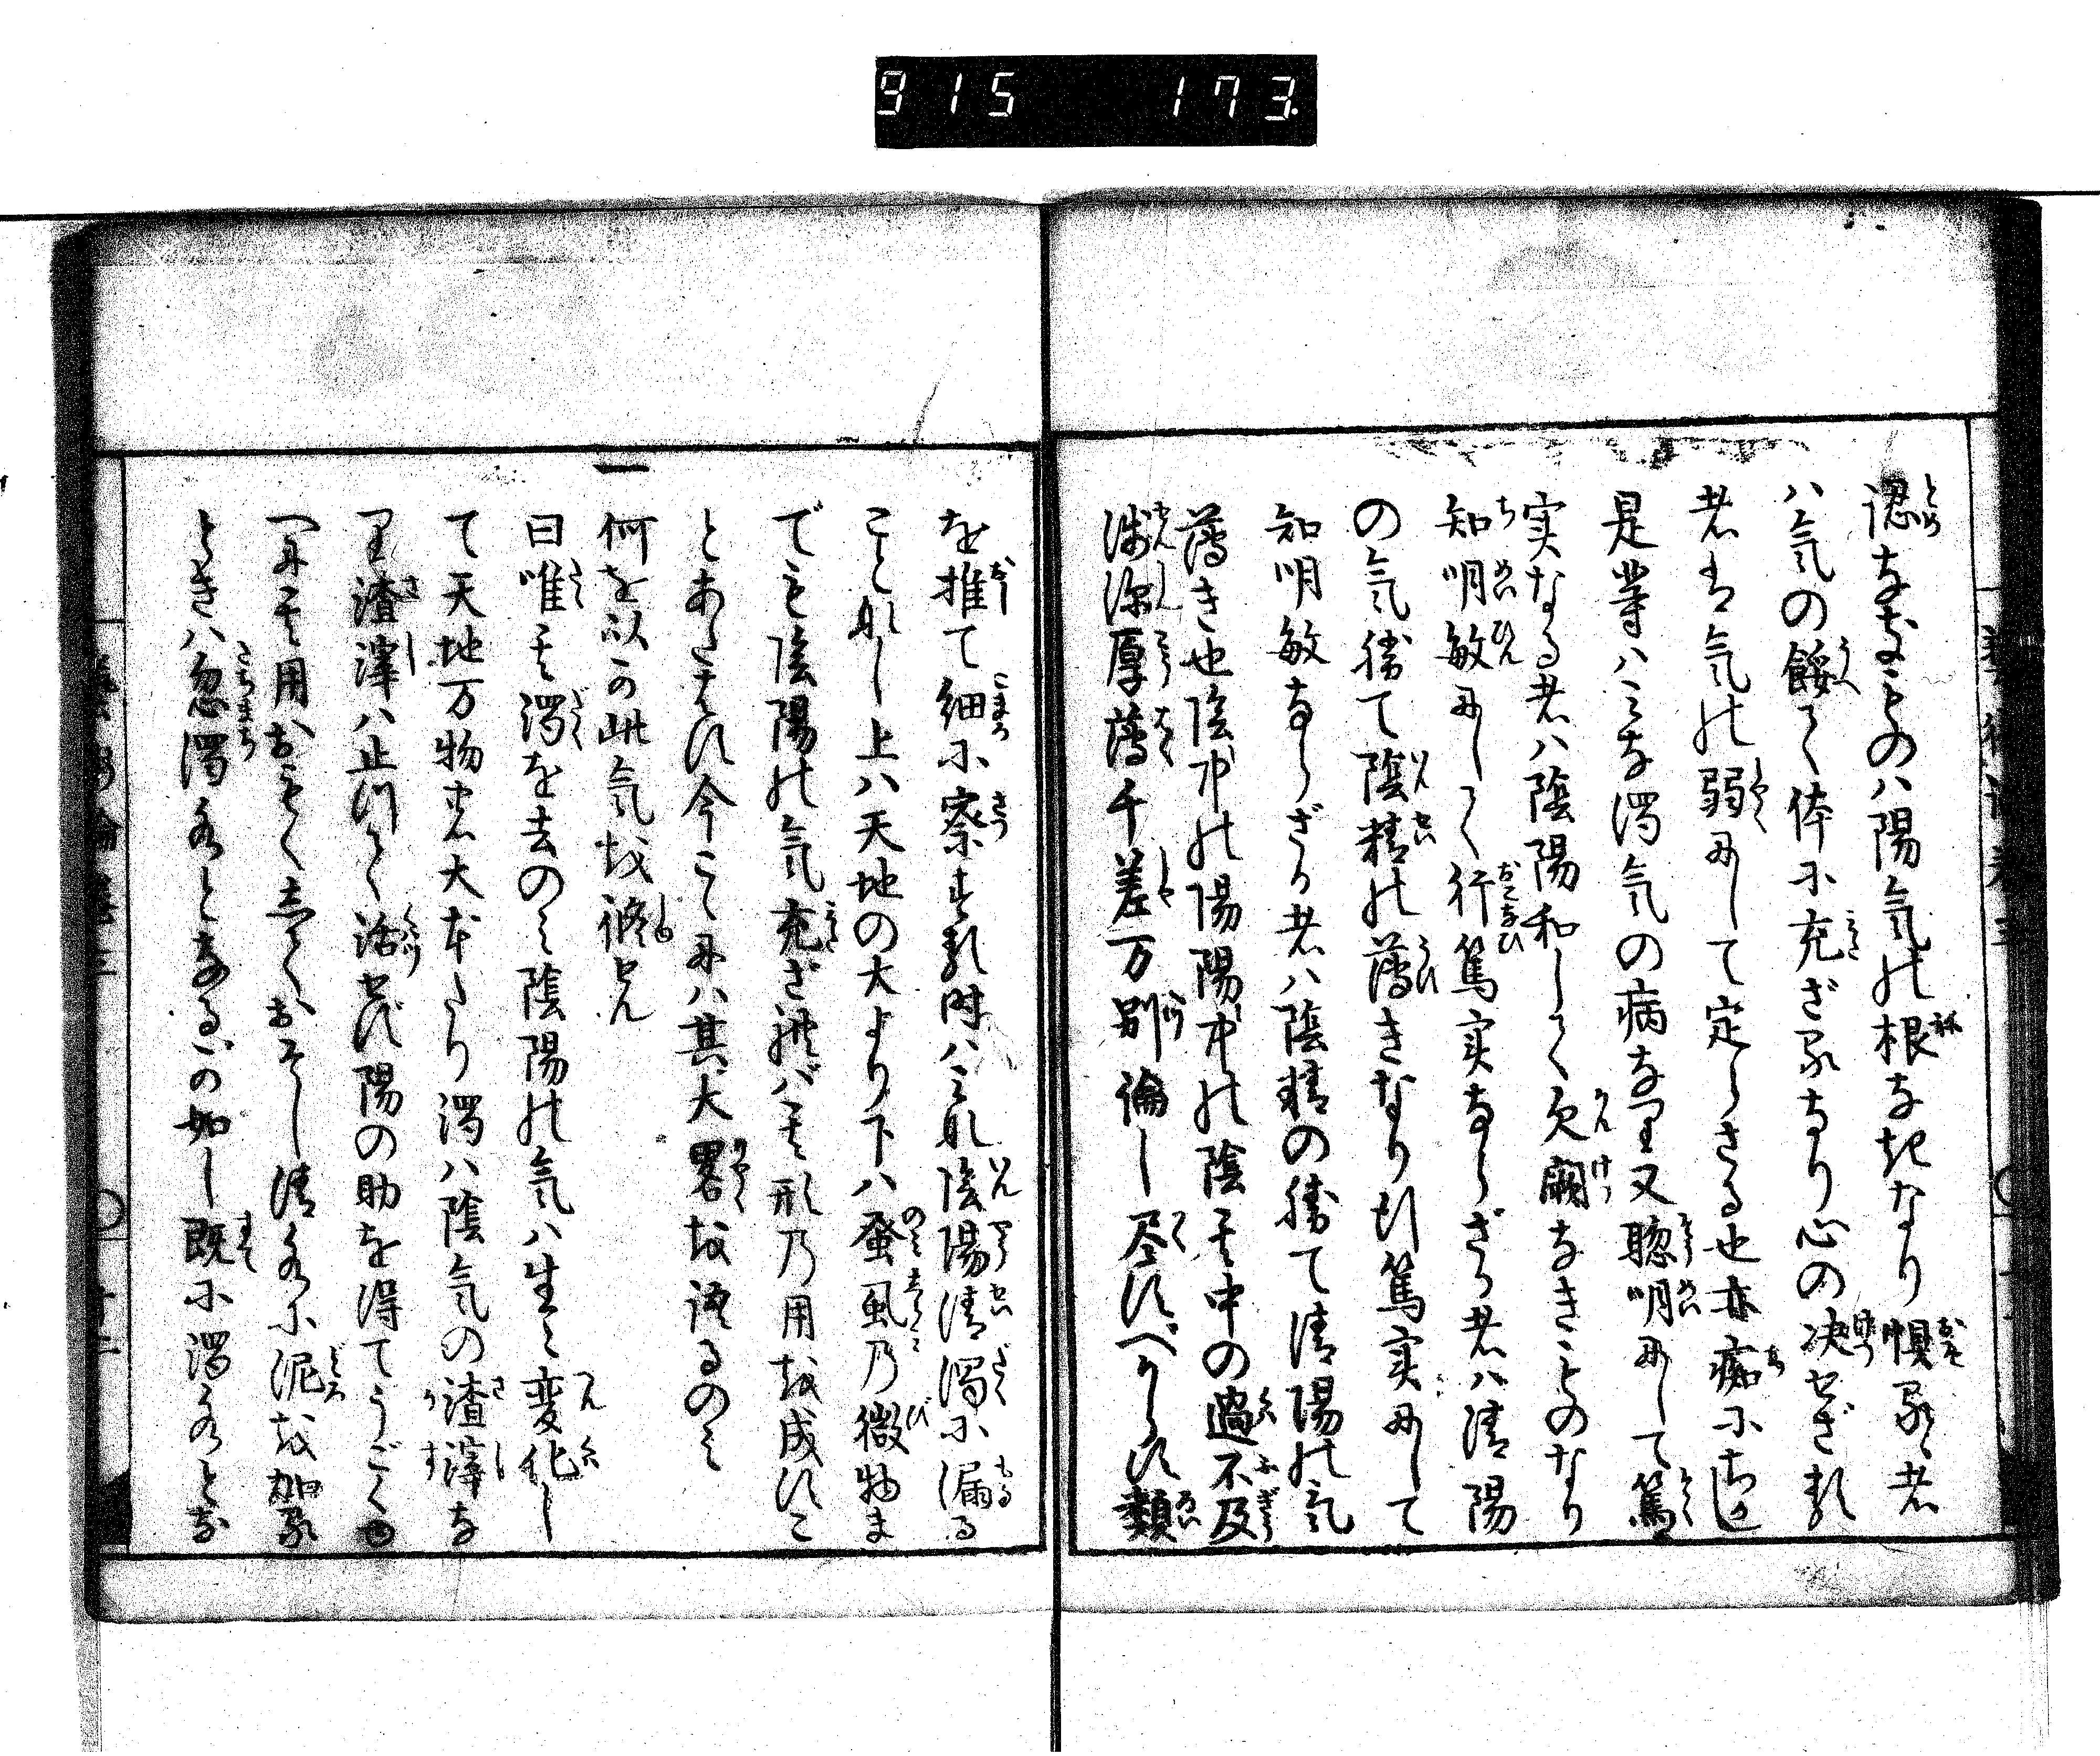 915 173.
認なきものハ陽気の根なきなり惧るゝ者
ハ気の餒て体に充ざるなり心の决せざる
者は気の弱にして定らざる也亦痴にちかし
是等ハみな濁気の病なり又聡明にして篤
実なる者ハ陰陽和して欠闕なきものなり
知明敏にして行篤実ならざる者ハ清陽
の気勝て陰精の薄きなり行篤実にして
知明敏ならざる者ハ陰精の勝て清陽の気
薄き也陰中の陽陽中の陰其中の過不及
浅深厚薄千差万別論し尽すべからず類
を推て細に察する時ハみな陰陽清濁に漏る
ことなし上ハ天地の大より下ハ蚤虱乃微物ま
でも陰陽の気充ざれバ其形乃用を成すこ
とあたはず今こゝにハ其大畧を語るのみ
一
何を以か此気を修せん
曰唯其濁を去のミ陰陽の気ハ生々変化し
て天地万物の大本たり濁ハ陰気の渣滓な
り渣滓ハ止りて活せず陽の助を得てうごく也
ゆへに其用おもくしておそし清水に泥を加る
ときハ忽濁水となるがの如し既に濁水とな